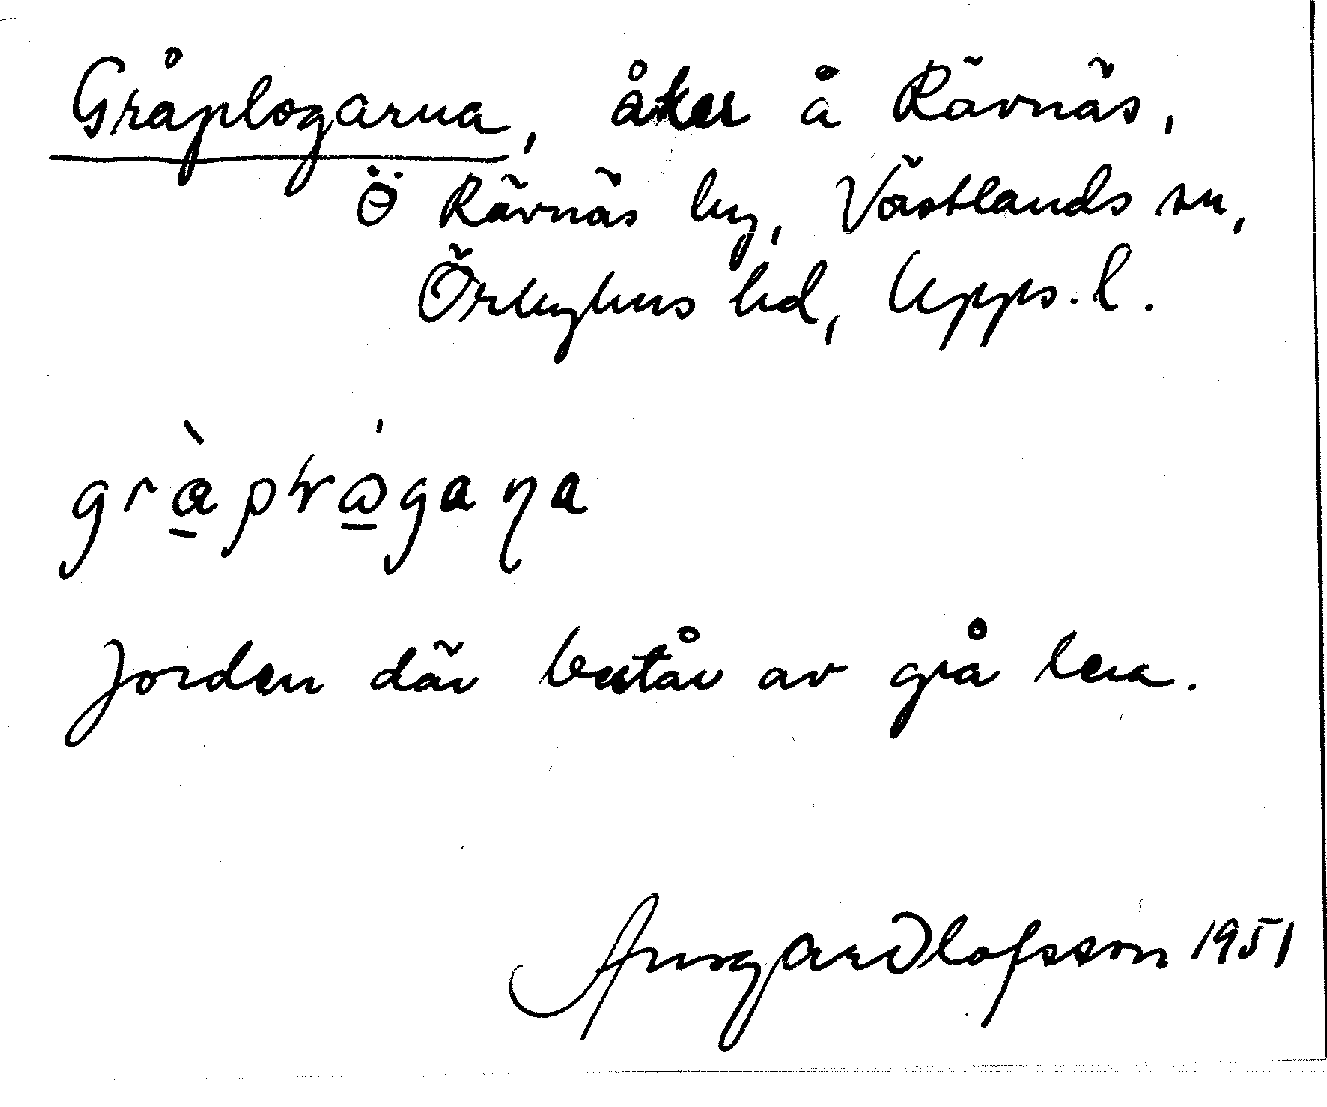 Gråplogarna, åker å Rävnäs,
Ö Rävnäs by, Västlands sn,
Örbyhus hd, Upps. l.
Jorden där består av grå lera.
Olofsson 1951